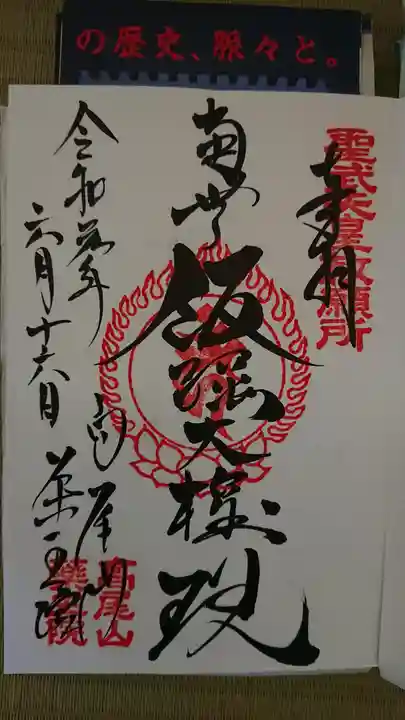 の歴史、脈々と。
奉拝
聖武天皇勅願所
南無飯縄大権現
令和元年
六月十六日
高尾山
薬王院
高尾山
薬王院